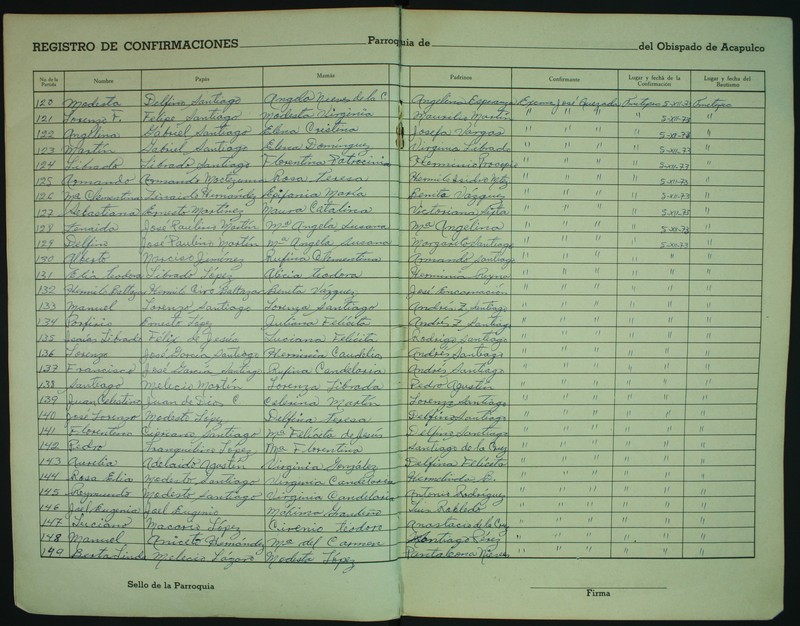 REGISTRO DE CONFIRMACIONES Parroquia de del Obispado de Acapulco
No. de la Partida Nombre Papás Mamás Padrinos Confirmante Lugar y fecha de la Confirmación Lugar y fecha del Bautismo
120 Modesta Delfino Santiago Angela Nieves de la C. Angelina Esperanza Excmo José Quezada 5-XII-73
121 Lorenzo F. Felipe Santiago Modesta Virginia Maurilio Martín " " " " 5-XII-73 "
122 Angelina Gabriel Santiago Elena Cristina Josefa Vargas " " " " 5-XII-73 "
123 Martín Gabriel Santiago Elena Dominguez Virginia Librado " " " " 5-XII-73 "
124 Librado Librado Santiago Florentina Patrocinia " " " " 5-XII-73 "
125 Armando Armando Moctezuma Rosa Teresa " " " " 5-XII-73 "
126 Ma Clementina Hernández Epifania María Benita Vázquez " " " " 5-XII-73 "
127 Sebastiana Ernesto Martínez Maura Catalina Victoriana " " " " 5-XII-73 "
128 Zenaida José Paulino Martín Ma Angela Susana Ma Angelina " " " " 5-XII-73 "
129 Delfino José Paulino Martín Ma Angela Susana Margarito Santiago " " " " 5-XII-73 "
130 Alberto Narciso Jiménez Rufina Clementina Armando Santiago " " " " "
131 Elia Teodora Librado López Alicia Teodora Herminia " " " " "
132 Hermilo Ciro Baltazar Benita Vázquez José Encarnación " " " " "
133 Manuel Lorenzo Santiago Lorenza Santiago Andrés Z. Santiago " " " " "
134 Porfirio Ernesto López Juliana Felícita Andrés Z. Santiago " " " " "
135 Isaías Librado Félix de Jesús Luciana Felícita Rodrigo Santiago " " " " "
136 Lorenzo José García Santiago Andrés Santiago " " " " "
137 Francisco José García Santiago Rufina Candelaria Andrés Santiago " " " " "
138 Santiago Melecio Martín Lorenza Librada Pedro Agustín " " " " "
139 Juan Celestino Juan de Dios C. Celerina Martín Lorenzo Santiago " " " " "
140 José Lorenzo Modesto López Delfina Teresa Delfino Santiago " " " " "
141 Florentino Cipriano Santiago Ma Felícita de Jesús Delfino Santiago " " " " "
142 Pedro Tranquilino López Ma Florentina Santiago de la Cruz " " " " "
143 Aurelia Adelaido Agustín Virginia González Delfina Felícita " " " " "
144 Rosa Elia Modesto Santiago Virginia Candelaria Hermelinda " " " " "
145 Reymundo Modesto Santiago Virginia Candelaria Antonio Rodríguez " " " " "
146 Eugenia Joel Eugenio Máxima Luis Robledo " " " " "
147 Luciano Macario López Teodora Anastacio de la Cruz " " " " "
148 Manuel Aniceto Hernández Ma del Carmen Santiago Pérez " " " " "
149 Berta Linda Melecio Lázaro Modesta López " " " " "
Sello de la Parroquia
Firma